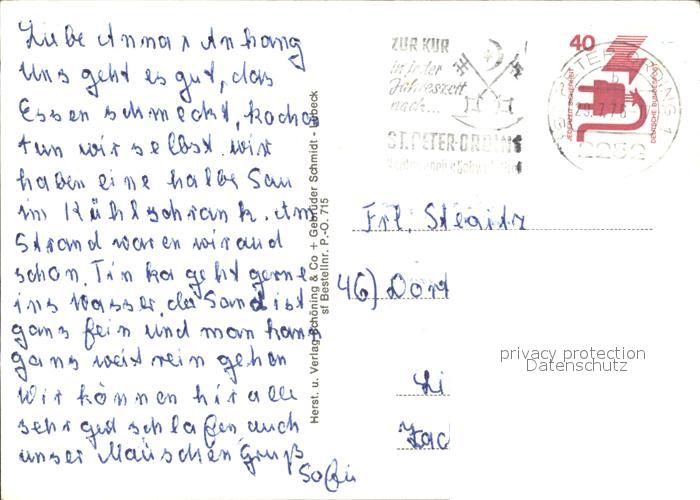 Liebe Anna + Anhang
Uns geht es gut, das
Essen schmeckt, kochen
tun wir selbst. wir
haben eine halbe Sau
im Kühlschrank. Am
Strand waren wir aud
schon. Tinka geht gerne
ins Wasser, der Sand ist
ganz fein und man kann
ganz weit rein gehen
Wir können hir alle
sehr gut schlafen auch
unser Mäuschen Gruß
Sofie
Herst. u. Verlag Schöning & Co + Gebrüder Schmidt - Lübeck
sf Bestellnr. P.-O. 715
ZUR KUR
in jeder
Jahreszeit
nach...
ST. PETER-ORDING
40
JEDERZEIT SICHERHEIT
DEUTSCHE BUNDESPOST
ST. PETER-ORDING 1
b
2252
Frl.
46) Dort
Li
Zac
privacy protection
Datenschutz